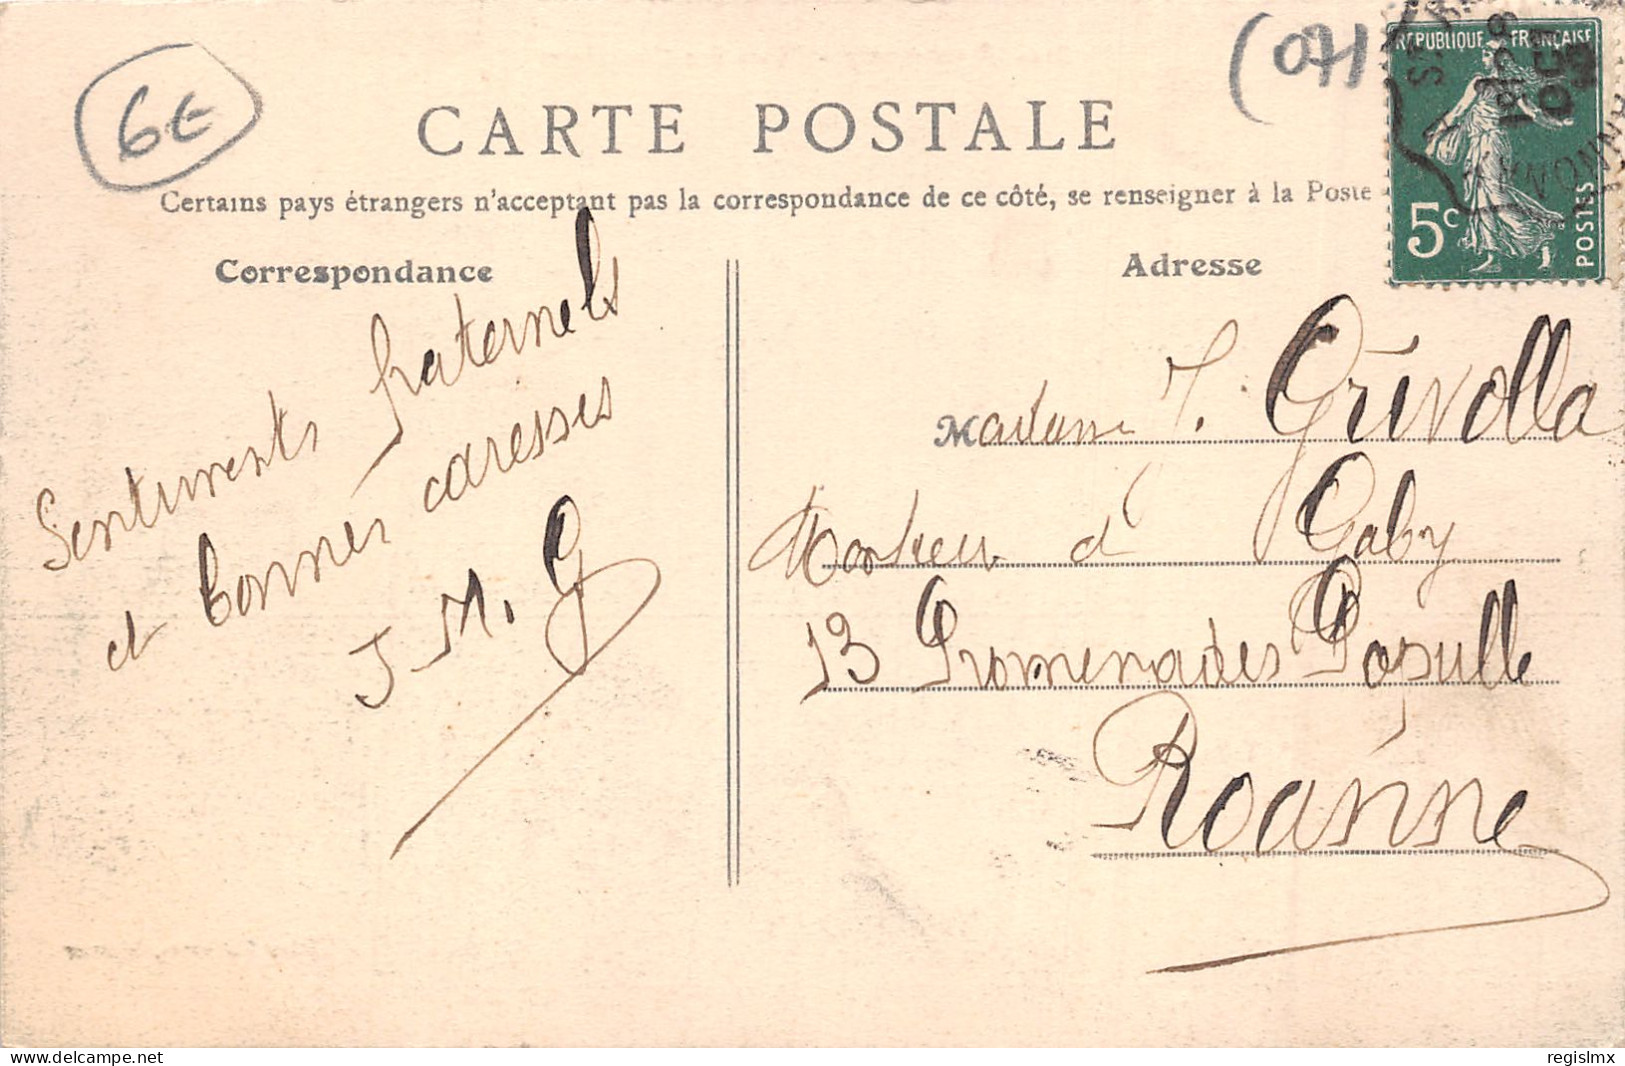 6€
(071
CARTE POSTALE
Certains pays étrangers n'acceptent pas la correspondance de ce côté, se renseigner à la Poste
REPUBLIQUE FRANÇAISE
5c
POSTES
Correspondance
Adresse
Sentiments fraternels
et bonnes caresses
J. M. G
Madame J. Grivolla
Monsieur et Gaby
13 Promenades Populle
Roanne
delcampe.net
regislmx